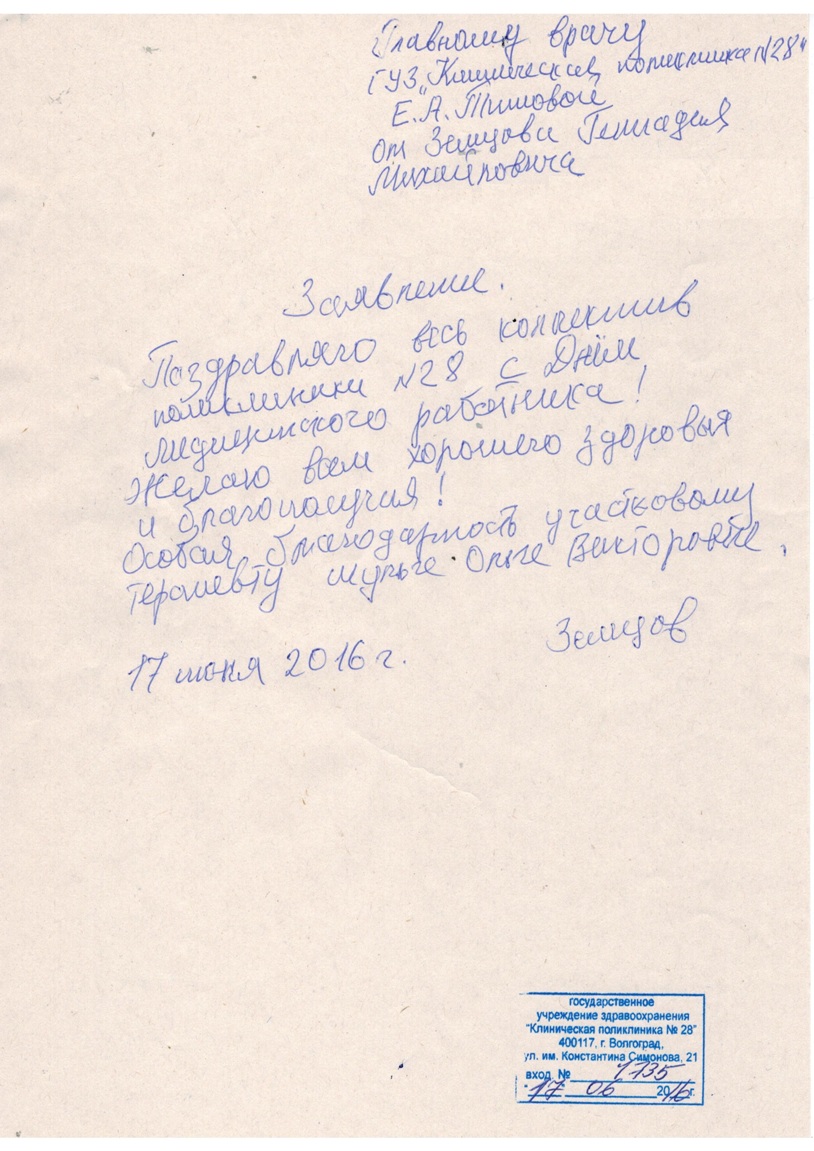 Главному врачу
ГУЗ „Клиническая поликлиника №28"
Е.А.Тимовой
от Земцова Геннадия
Михайловича
Заявление.
Поздравляю весь коллектив
поликлиники №28 с Днём
медицинского работника!
Желаю всем хорошего здоровья
и благополучия!
Особая благодарность участковому
терапевту Ольге Викторовне.
17 июня 2016 г.
Земцов
государственное
учреждение здравоохранения
"Клиническая поликлиника № 28"
400117, г. Волгоград,
ул. им. Константина Симонова, 21
вход. № 1735
"17" 06 2016г.